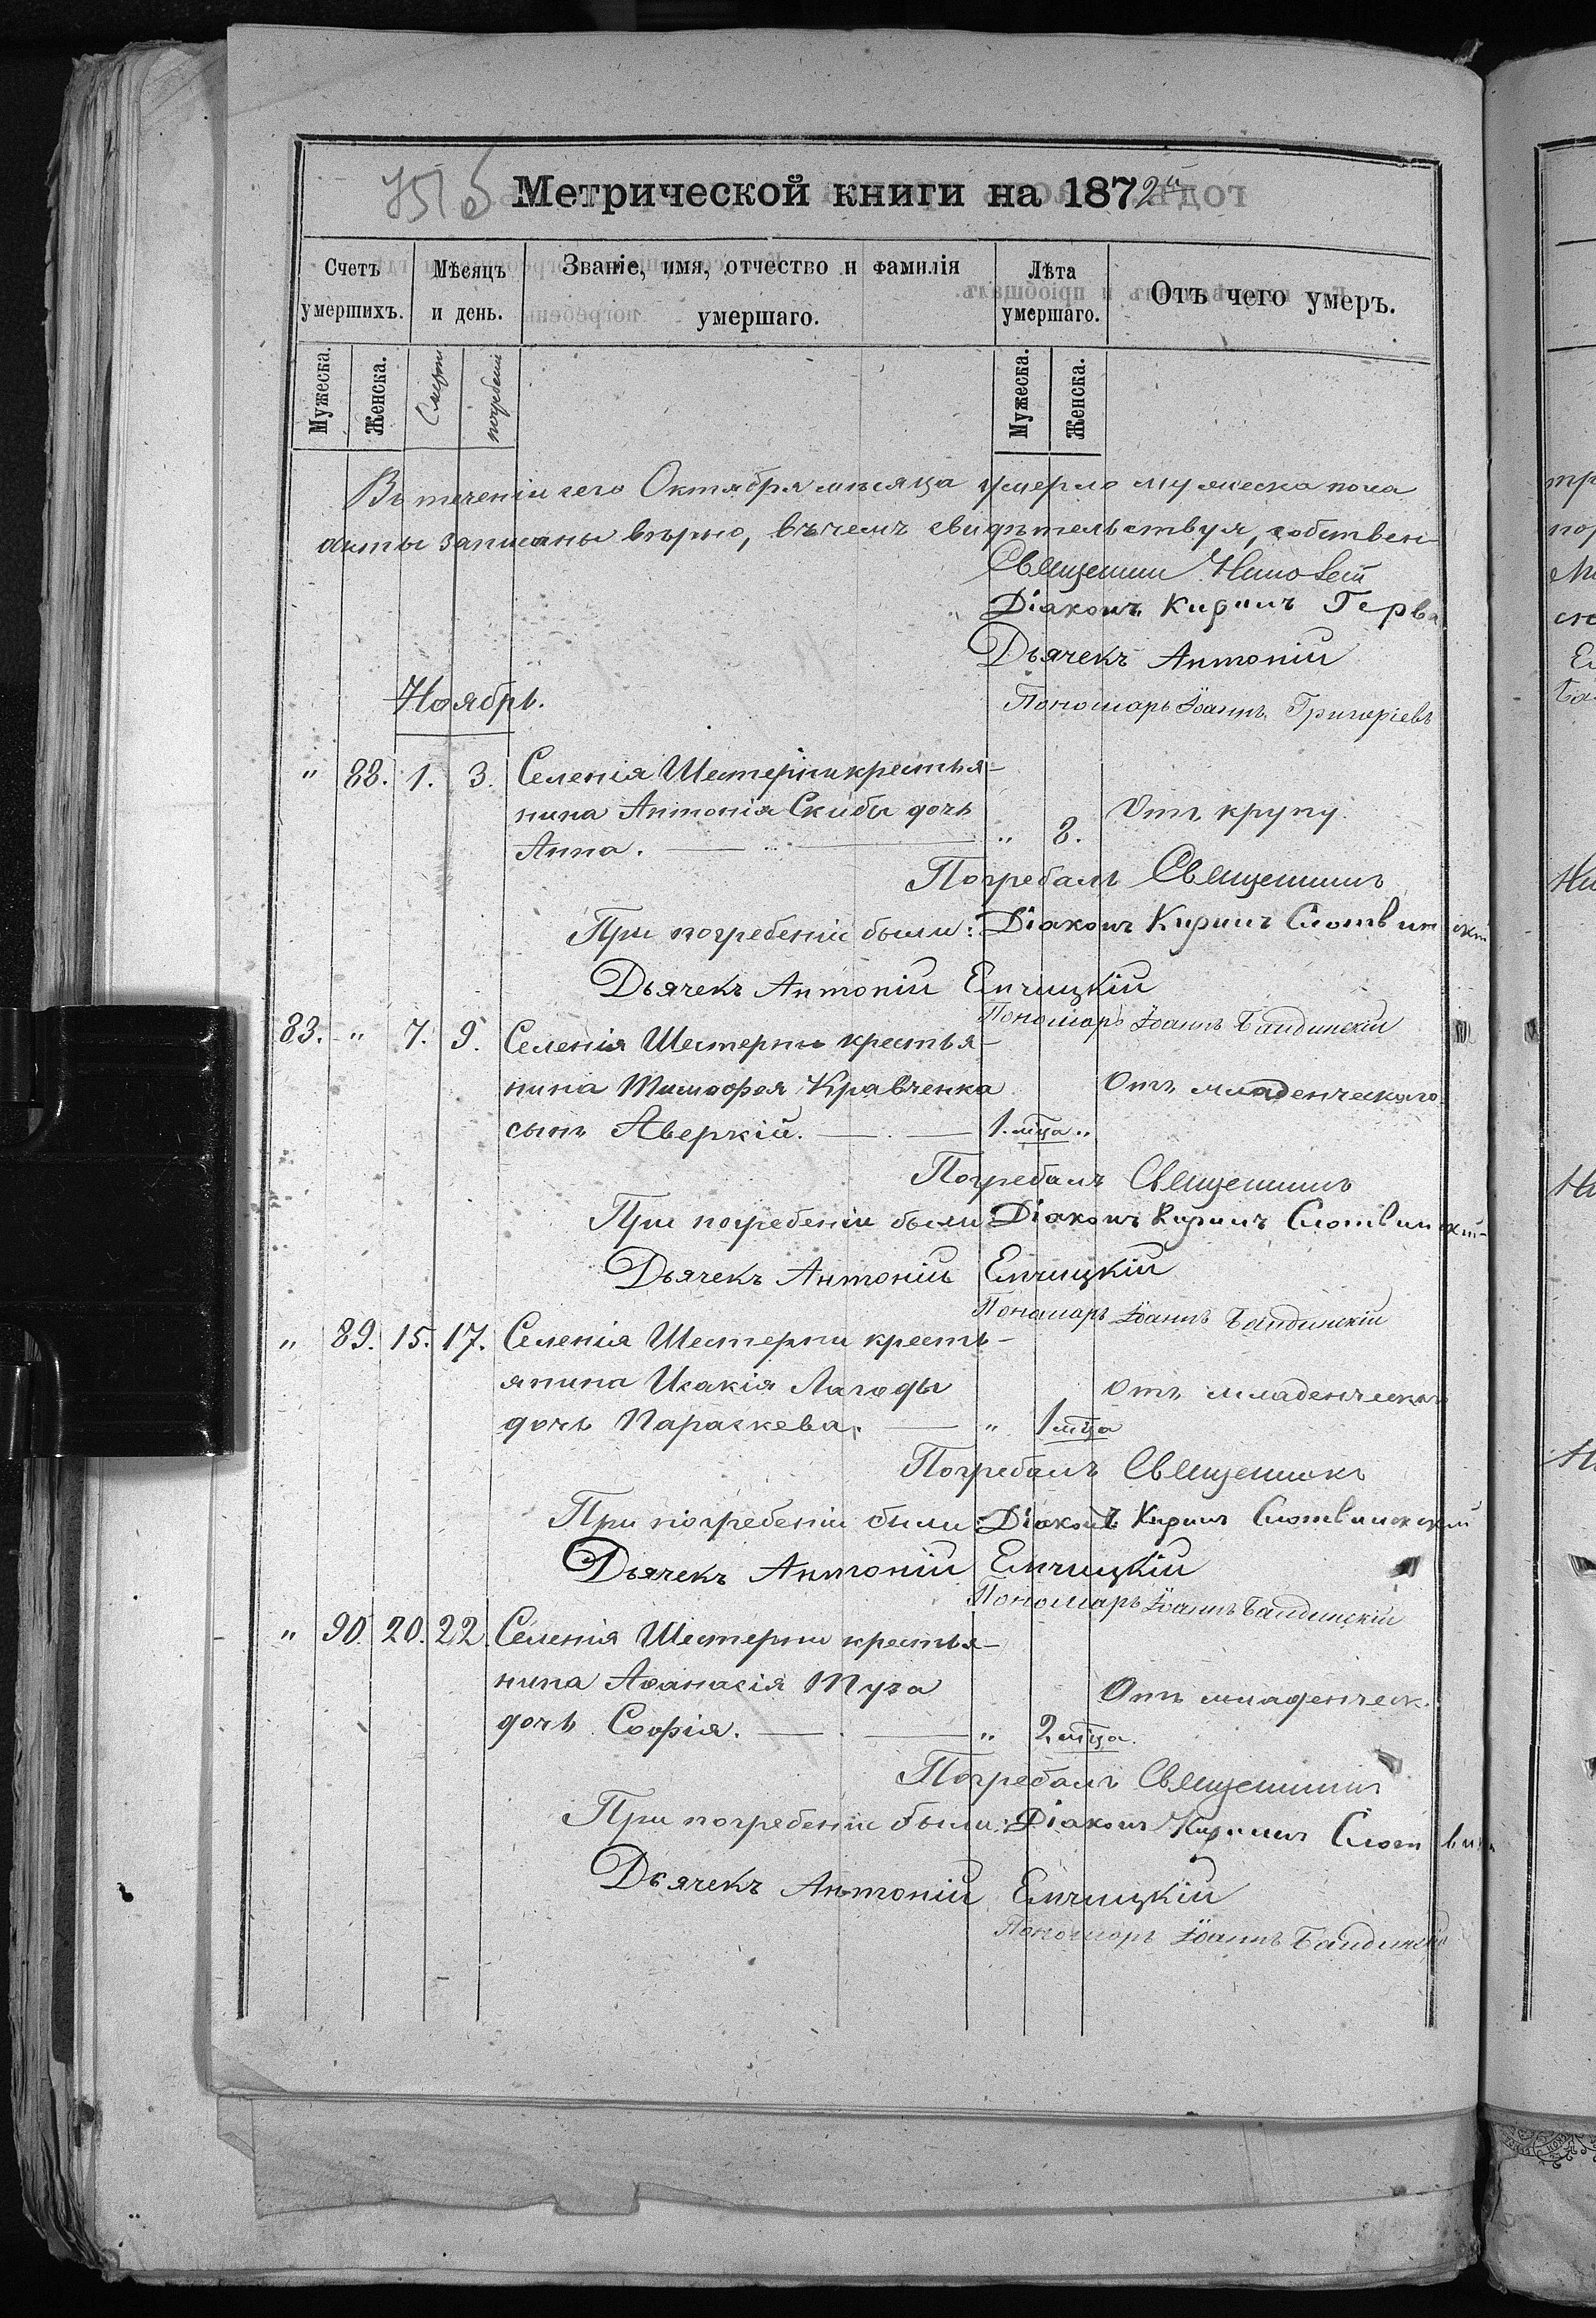 Метрической книги на 1872й
Счетъ умершихъ.
Мѣсяцъ и день.
Званіе, имя, отчество и фамилія умершаго.
Лѣта умершаго.
Отъ чего умеръ.
Мужеска.
Женска.
Смерти
погребенія
Мужеска.
Женска.
Въ теченіи сего Октября мѣсяца умерло мужеска пола
акты записаны вѣрно, въ чемъ свидѣтельствуя, собствен
Священник
Діаконъ Кирилъ
Дьячекъ Антоній
Пономарь Іоаннъ Григоріевъ
Ноябрь.
" 88. 1. 3. Селенія Шестерни крестья-
нина Антонія Скибы дочь Отъ крупу.
Анна. " 8.
Погребалъ Священникъ
При погребеніи были: Діаконъ Кирилъ Слотвинскій
Дьячекъ Антоній Емчицкій
Пономарь Іоаннъ Бандинскій
83. " 7. 9. Селенія Шестерни крестья-
нина Тимофея Кравченка Отъ младенческаго
сынъ Аверкій. 1. мца "
Погребалъ Священникъ
При погребеніи были Діаконъ Кирилъ Слотвинскій
Дьячекъ Антоній Емчицкій
Пономарь Іоаннъ Бандинскій
" 89. 15. 17. Селенія Шестерни кресть-
янина Исакія Лагоды Отъ младенческаго
дочь Параскева. " 1 мца
Погребалъ Священникъ
При погребеніи были: Діаконъ Кирилъ Слотвинскій
Дьячекъ Антоній Емчицкій
Пономарь Іоаннъ Бандинскій
" 90. 20. 22. Селенія Шестерни крестья-
нина Аѳанасія Туза Отъ младенческ.
дочь Софія. " 2 мца.
Погребалъ Священникъ
При погребеніи были: Діаконъ Кирилъ Слотвин
Дьячекъ Антоній Емчицкій
Пономарь Іоаннъ Бандинскій